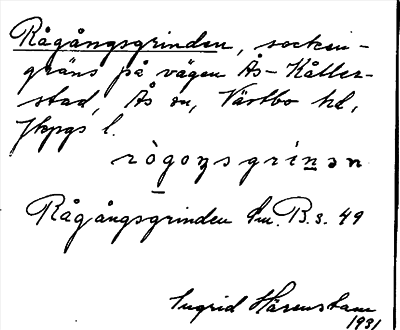 Rågångsgrinden, socken-
gräns på vägen Ås – Kåller-
stad, Ås sn, Västbo hd,
Jkpgs l.
rògoŋsgrinən
Rågångsgrinden Sm. B. s. 49
Ingrid Hårenstam
1931